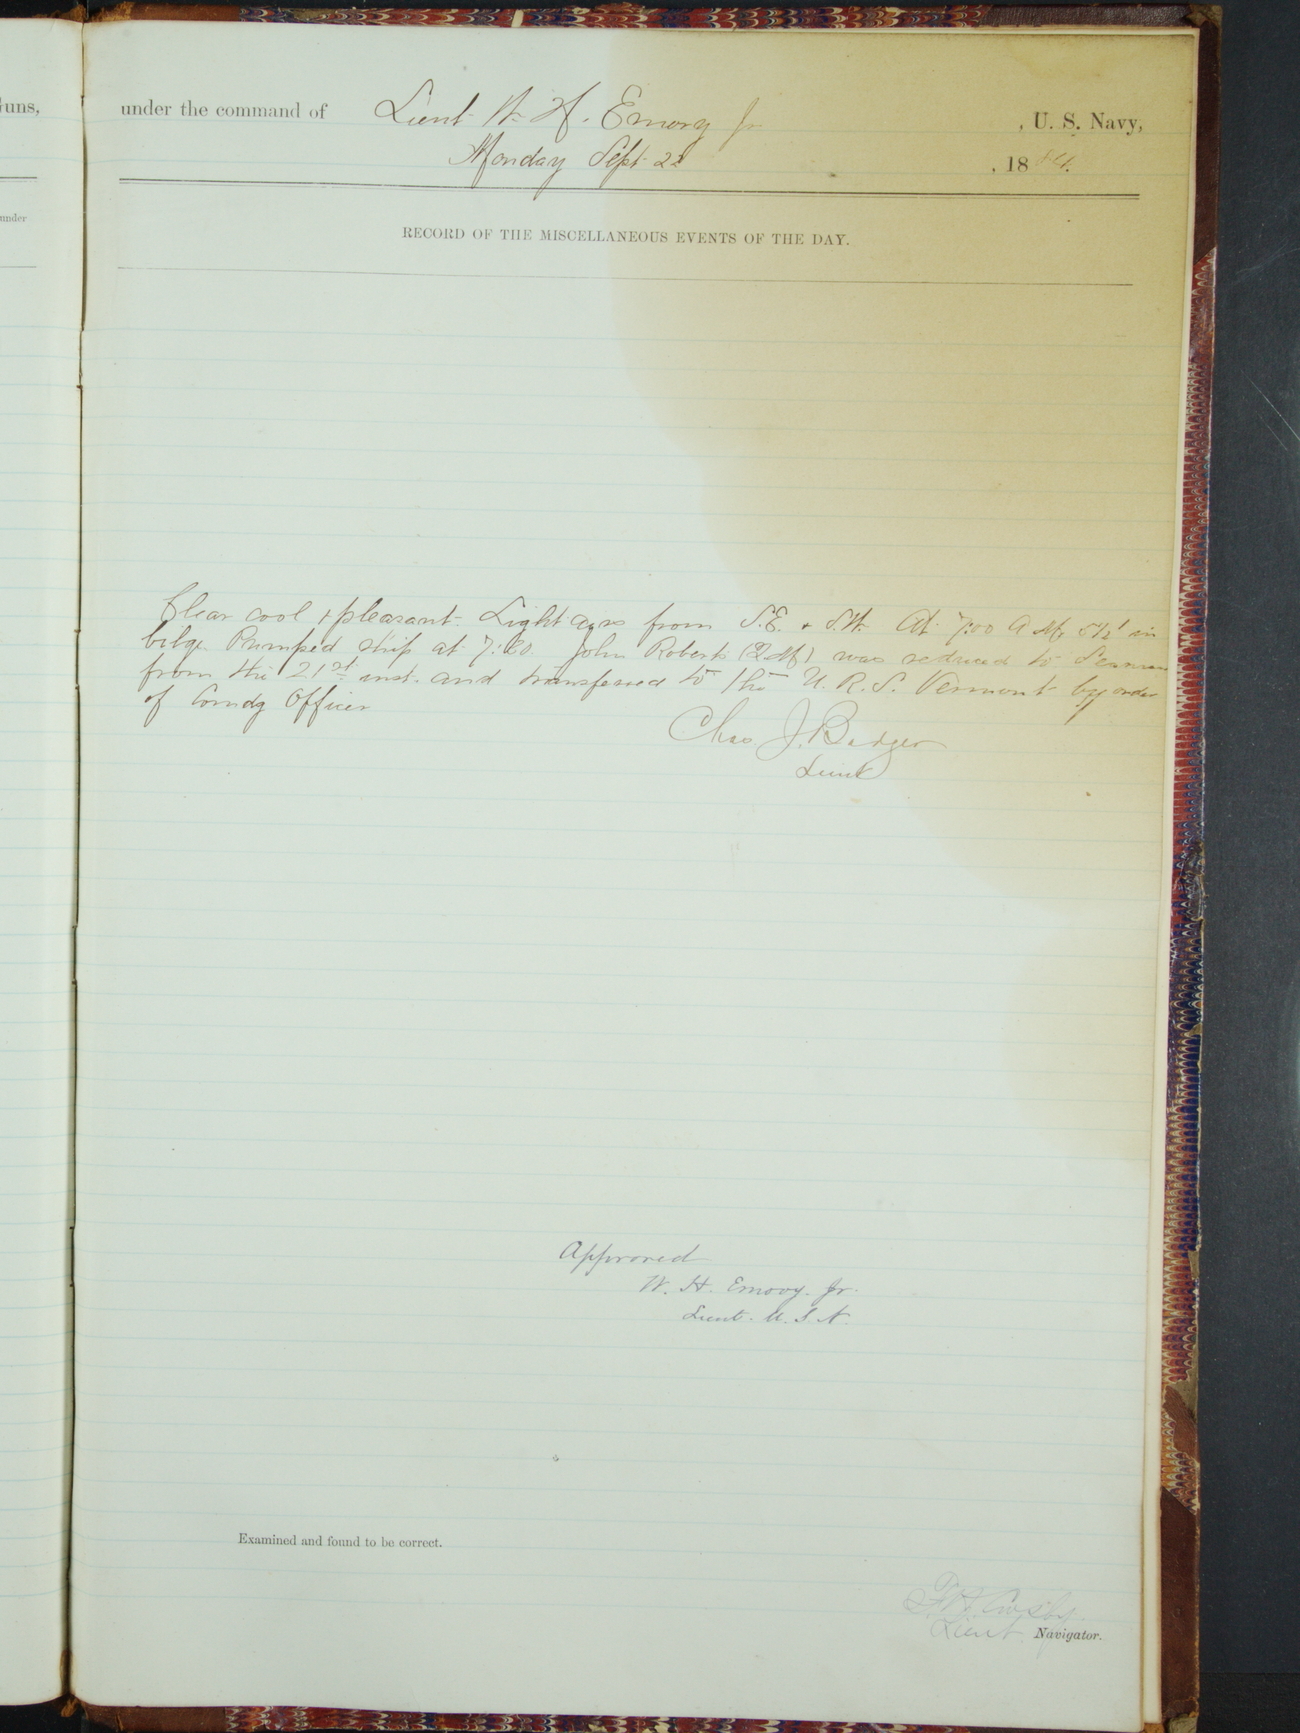 Guns,
under the command of Lieut W. H. Emory Jr , U. S. Navy,
Monday Sept 22 , 1884.
under
RECORD OF THE MISCELLANEOUS EVENTS OF THE DAY.
Clear cool + pleasant. Light airs from S.E. + S.W. At 7:00 A.M. 5½' in
bilge. Pumped ship at 7:30. John Roberts (Q.M) was reduced to Seaman
from the 21st inst. and transferred to the U. R. S. Vermont by order
of Comdg Officer
Chas J. Badger
Lieut
Approved
W. H. Emory. Jr.
Lieut. U. S. N.
Examined and found to be correct.
Crosby.
Lieut. Navigator.